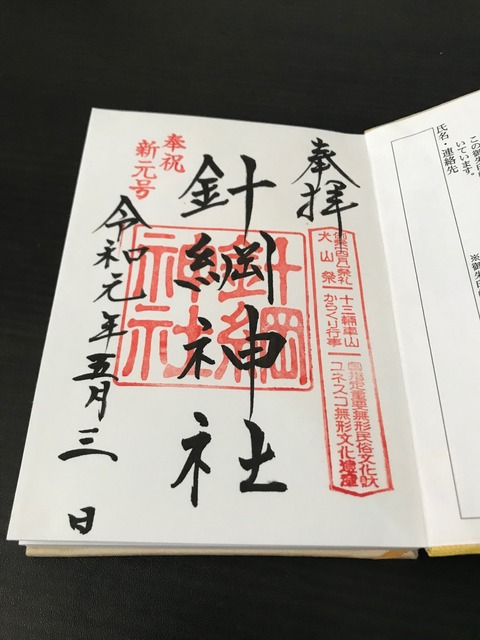 奉拝
例祭(四月)祭礼
犬山祭
十三輛車山
からくり行事
国指定重要無形民俗文化財
ユネスコ無形文化遺産
針綱神社
針綱
神社
奉祝
新元号
令和元年五月三日
この御朱印
いています。
氏名・連絡先
※御朱印